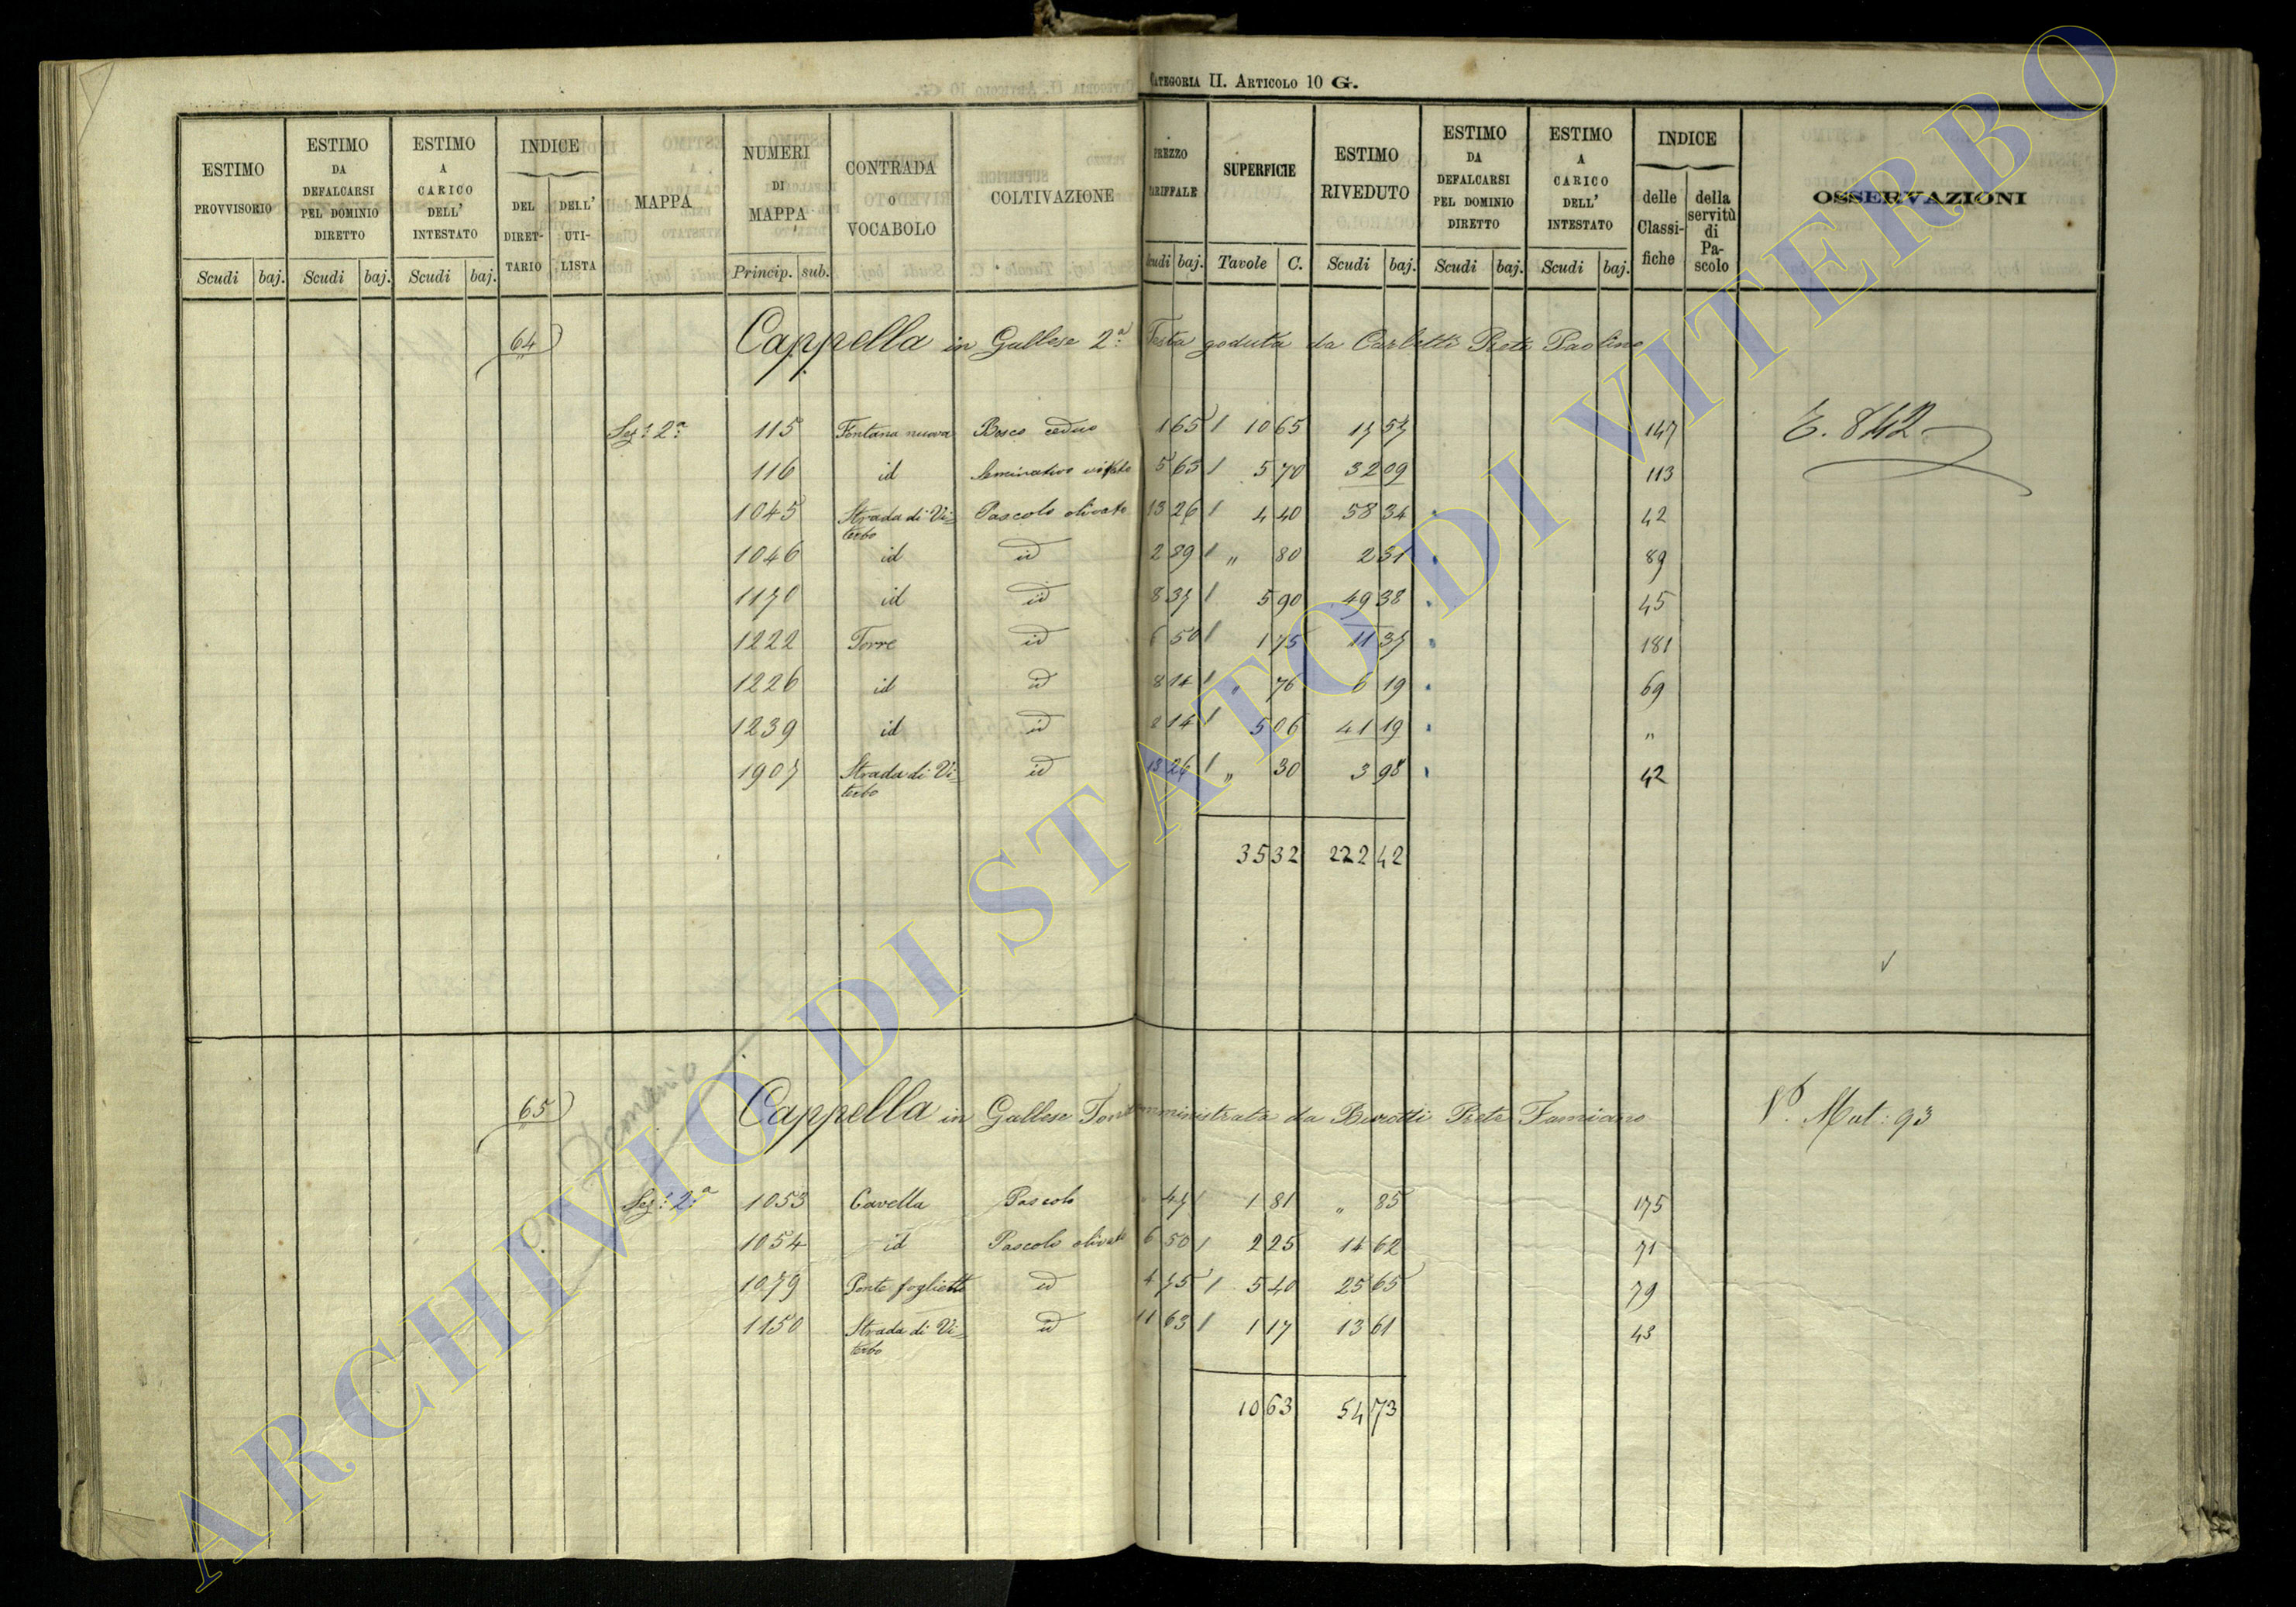 CATEGORIA II. ARTICOLO 10 G.
ESTIMO PROVVISORIO Scudi baj. ESTIMO DA DEFALCARSI PEL DOMINIO DIRETTO Scudi baj. ESTIMO A CARICO DELL' INTESTATO Scudi baj. INDICE DEL DIRET-TARIO DELL' UTI-LISTA MAPPA NUMERI DI MAPPA Princip. sub. CONTRADA O VOCABOLO COLTIVAZIONE PREZZO TARIFFALE Scudi baj. SUPERFICIE Tavole C. ESTIMO RIVEDUTO Scudi baj. ESTIMO DA DEFALCARSI PEL DOMINIO DIRETTO Scudi baj. ESTIMO A CARICO DELL' INTESTATO Scudi baj. INDICE delle Classi-fiche della servitù di Pa-scolo OSSERVAZIONI
64 Cappella in Gallese 2ª Testa goduta da Carletti Prete Paolino
Sez: 2ª 115 Fontana nuova Bosco ceduo 1 65 10 65 17 57 147 E. 842
116 id Seminativo vitato 5 63 5 70 32 09 113
1045 Strada di Vi=
terbo Pascolo olivato 13 26 4 40 58 34 42
1046 id id 2 89 " 80 2 31 89
1170 id id 8 37 5 90 49 38 45
1222 Torre id 6 50 1 75 11 37 181
1226 id id 8 14 " 76 6 19 69
1239 id id 8 14 5 06 41 19 "
1907 Strada di Vi=
terbo id 13 26 " 30 3 98 42
35 32 222 42
65 Cappella in Gallese amministrata da Prete Famiano Mut: 93
Demanio
Sez: 2ª 1053 Cavella Pascolo 47 1 81 " 85 175
1054 id Pascolo olivato 6 50 2 25 14 62 71
1079 Ponte foglietto id 4 75 5 40 25 65 79
1150 Strada di Vi=
terbo id 11 63 1 17 13 61 43
10 63 54 73
ARCHIVIO DI STATO DI VITERBO